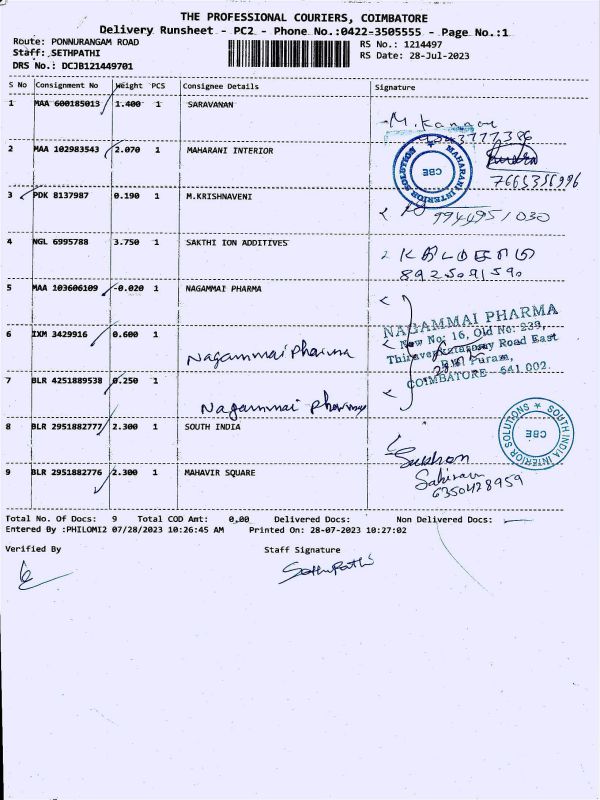 THE PROFESSIONAL COURIERS, COIMBATORE
Delivery Runsheet - PC2 - Phone No.:0422-3505555 - Page No.:1
Route: PONNURANGAM ROAD RS No.: 1214497
Staff: SETHPATHI RS Date: 28-Jul-2023
DRS No.: DCJB121449701
S No Consignment No Weight PCS Consignee Details Signature
1 MAA 600185013 1.400 1 SARAVANAN
M.Kannan
2 MAA 102983543 2.070 1 MAHARANI INTERIOR
MAHARANI INTERIOR SOLUTION CBE
3 PDK 8137987 0.190 1 M.KRISHNAVENI
4 NGL 6995788 3.750 1 SAKTHI ION ADDITIVES
8925091590
5 MAA 103606109 -0.020 1 NAGAMMAI PHARMA
NAGAMMAI PHARMA
New No: 16, Old No: 239,
Road East
Puram,
COIMBATORE 641 002.
6 IXM 3429916 0.600 1 Nagammai Pharma
7 BLR 4251889538 0.250 1 Nagammai Pharma
8 BLR 2951882777 2.300 1 SOUTH INDIA
SOUTH INDIA INTERIOR SOLUTIONS CBE
9 BLR 2951882776 2.300 1 MAHAVIR SQUARE
6350428959
Total No. Of Docs: 9 Total COD Amt: 0.00 Delivered Docs: Non Delivered Docs:
Entered By :PHILOMI2 07/28/2023 10:26:45 AM Printed On: 28-07-2023 10:27:02
Verified By Staff Signature
SethuPathi